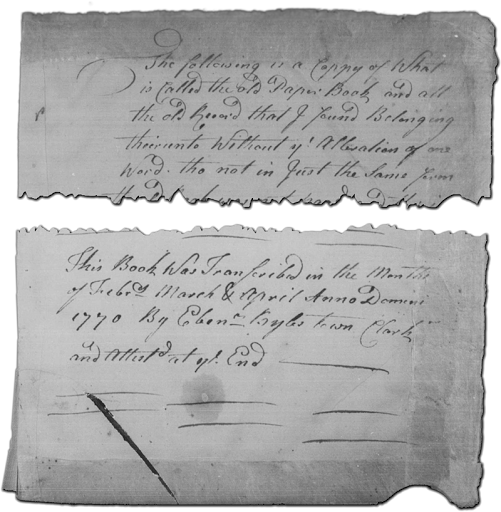 The following is a Coppy of What
is Called the old Paper Book and all
the old Record that I found Belonging
theirunto Without ye Alteration of one
Word. tho not in Just the Same form
This Book Was Transcribed in the Months
of Febry March & April Anno Domini
1770 By Ebenr Byles Town Clark
and Attestd at ye End